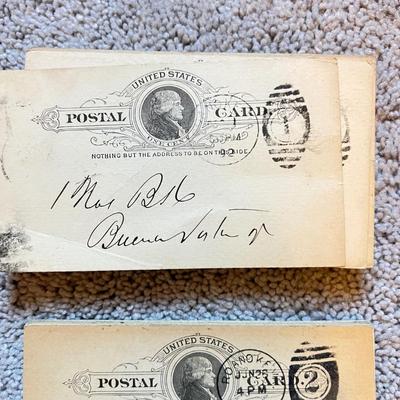 UNITED STATES
POSTAL CARD.
ONE CENT
NOTHING BUT THE ADDRESS TO BE ON THIS SIDE.
92
1
Buena Vista
UNITED STATES
POSTAL CARD.
ROANOKE
JUN 26
4 PM
2